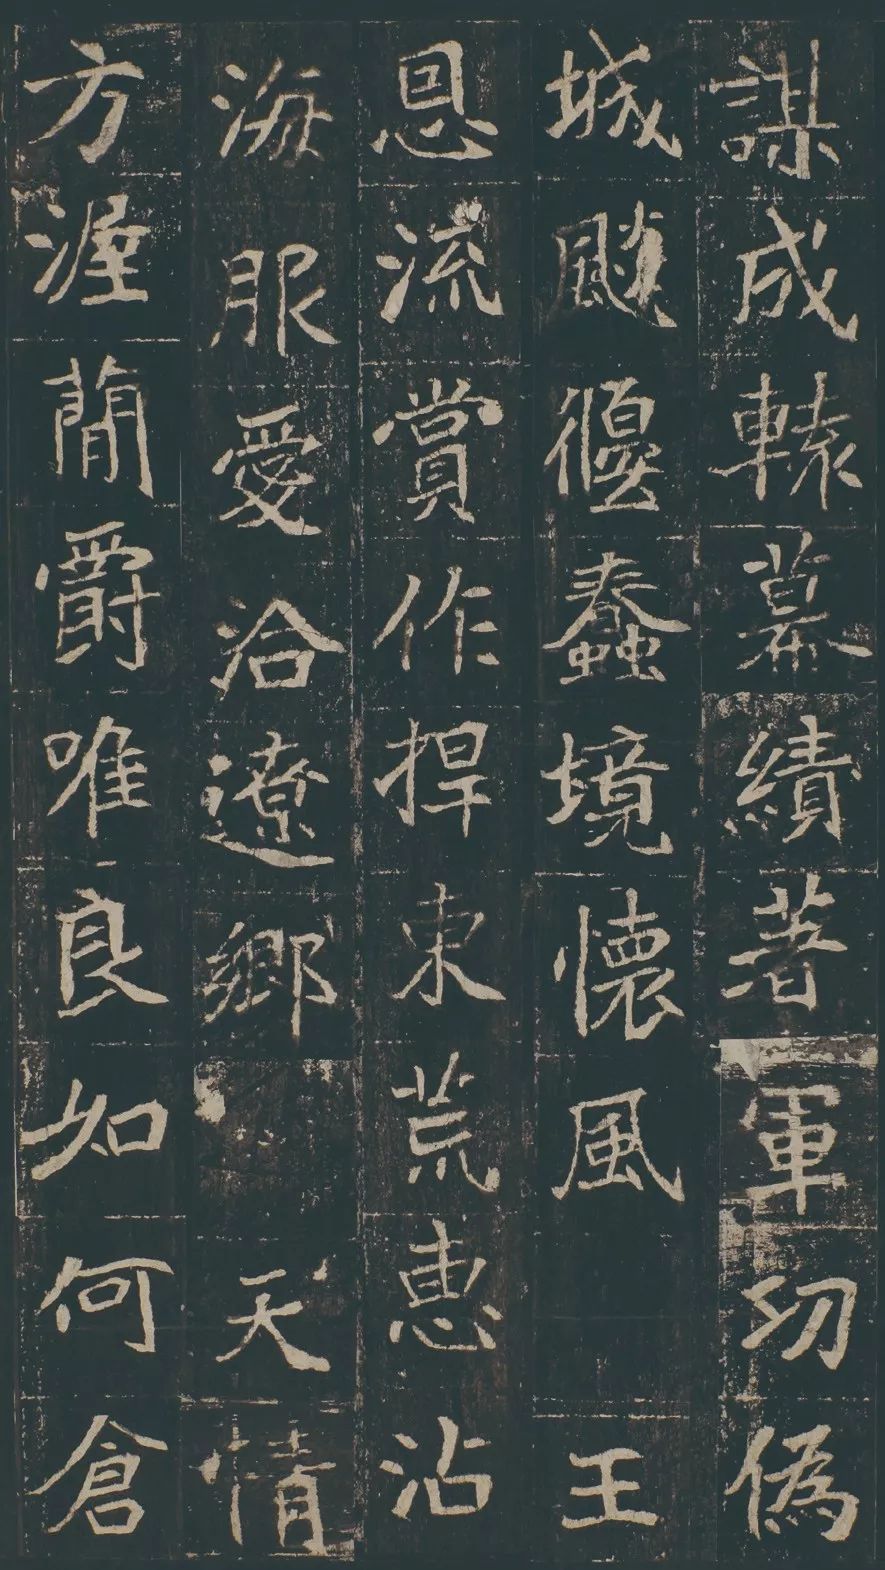 謀成轅幕績著軍功偽
城颷偃蠢境懷風 王
恩流賞作捍東荒惠沾
海服愛洽遼鄉 天情
方渥蕳爵唯良如何倉